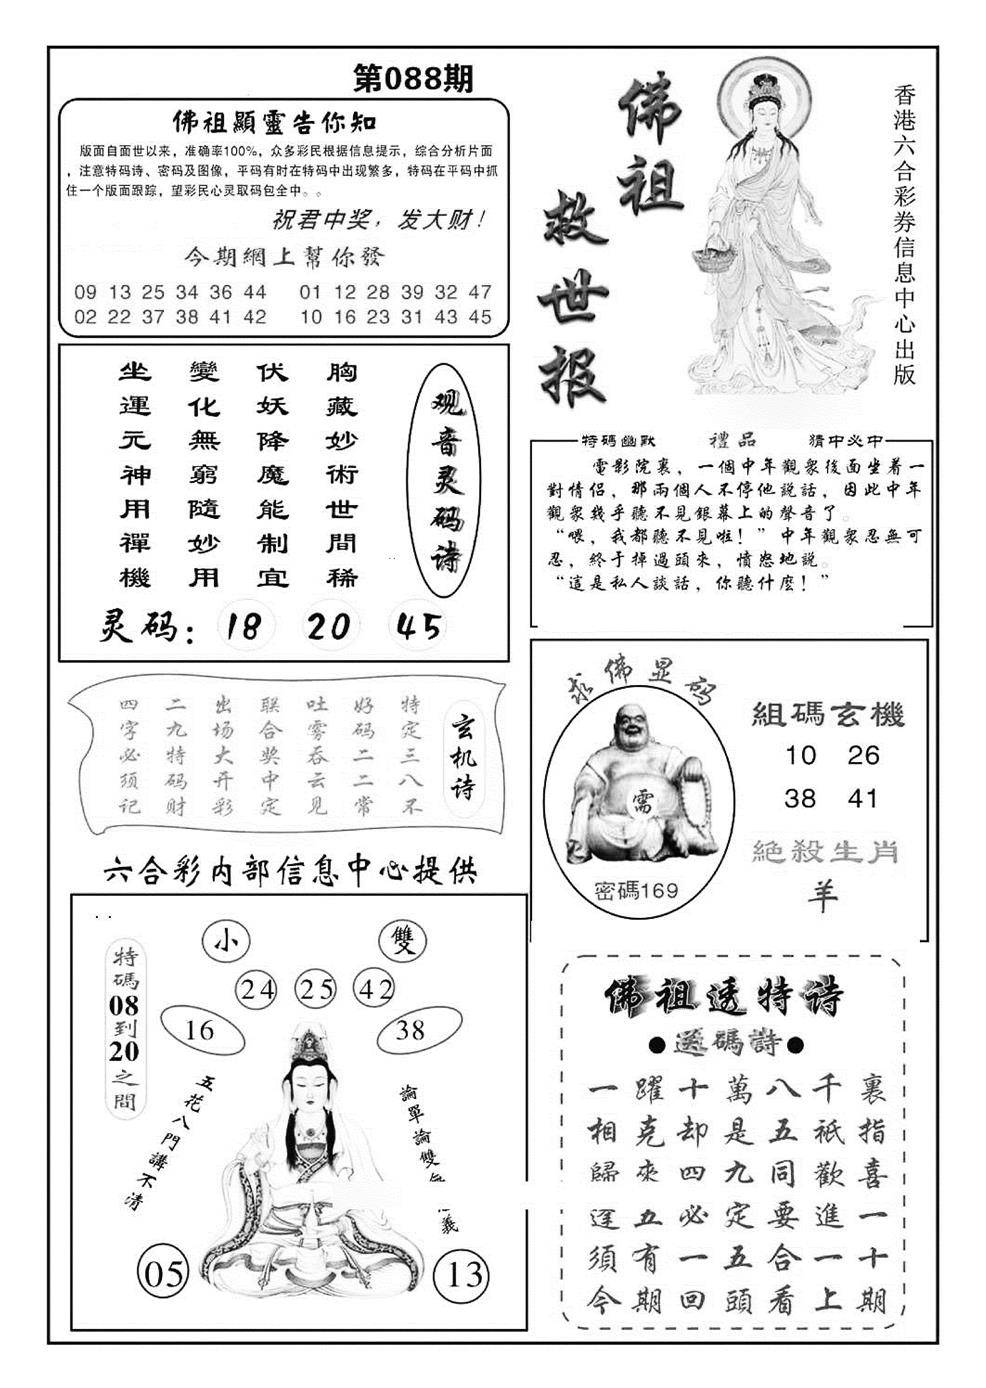 第088期
佛祖顯靈告你知
版面自面世以来，准确率100%，众多彩民根据信息提示，综合分析片面
，注意特码诗、密码及图像，平码有时在特码中出现繁多，特码在平码中抓
住一个版面跟踪，望彩民心灵取码包全中。。
祝君中奖，发大财！
今期網上幫你發
09 13 25 34 36 44 01 12 28 39 32 47
02 22 37 38 41 42 10 16 23 31 43 45
佛祖
救世报
香港六合彩券信息中心出版
观音灵码诗
胸藏妙術世間稀
伏妖降魔能制宜
變化無窮隨妙用
坐運元神用禪機
灵码：18 20 45
特碼幽默 禮品 猜中必中
電影院裏，一個中年觀衆後面坐着一
對情侣，那兩個人不停他説話，因此中年
觀衆幾乎聽不見銀幕上的聲音了。
“喂，我都聽不見啦！”中年觀衆忍無可
忍，終于掉過頭來，憤怒地説。
“這是私人談話，你聽什麽！”
玄机诗
特定三八不
好码二二常
吐雾吞云见
联合奖中定
出场大开彩
二九特码财
四字必须记
求佛显码
需
密碼169
組碼玄機
10 26
38 41
絕殺生肖
羊
六合彩内部信息中心提供
特碼08到20之間
小 雙
24 25 42
16 38
五花八門講不清
論單論雙
義
05 13
佛祖透特诗
●送碼詩●
一躍十萬八千裏
相克却是五祇指
歸來四九同歡喜
逢五必定要進一
須有一五合一十
今期回頭看上期